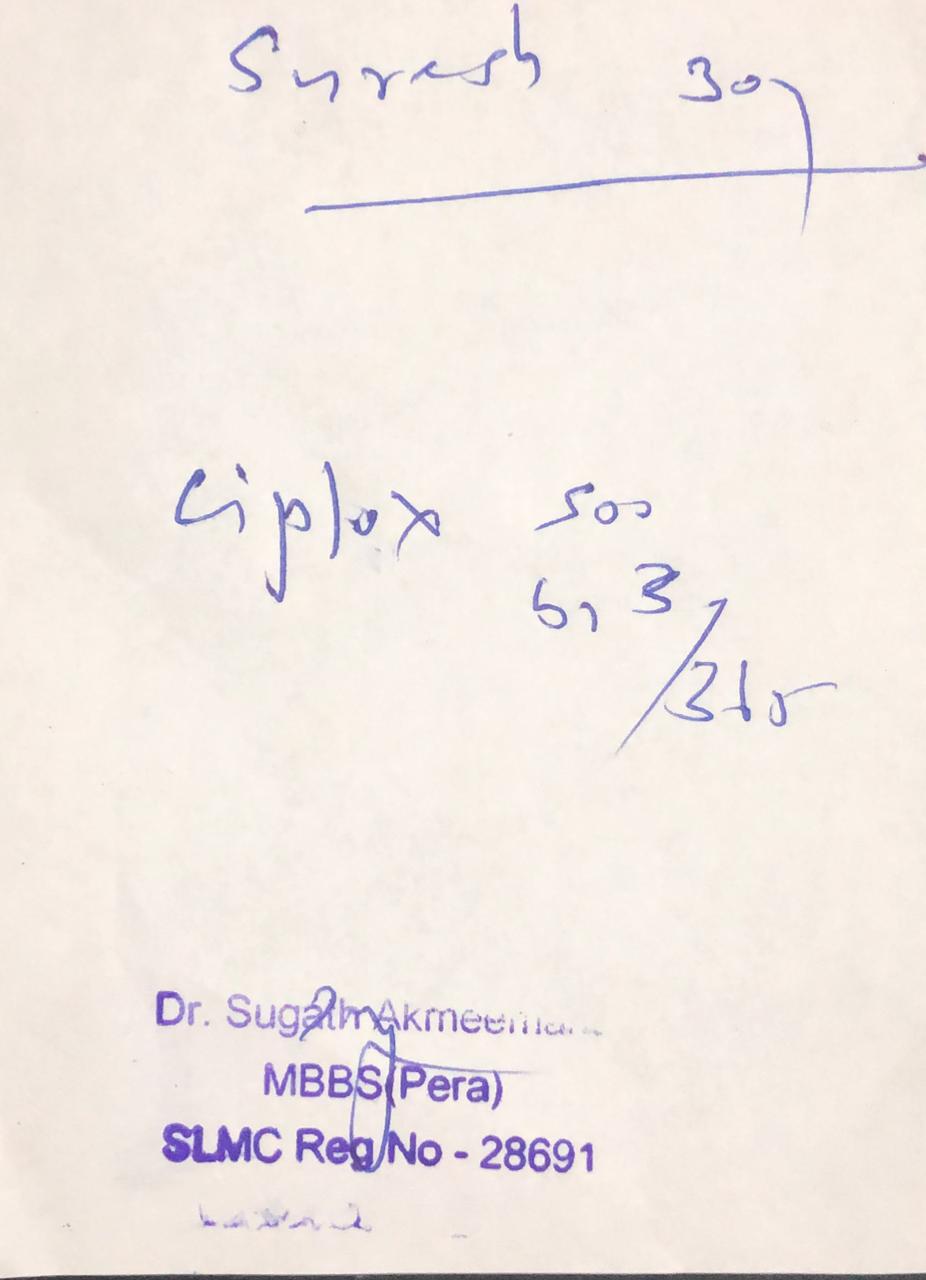 Suresh 30y
Ciplox 500
b, 3
/3d5
Dr. Sugath
MBBS(Pera)
SLMC Reg No - 28691